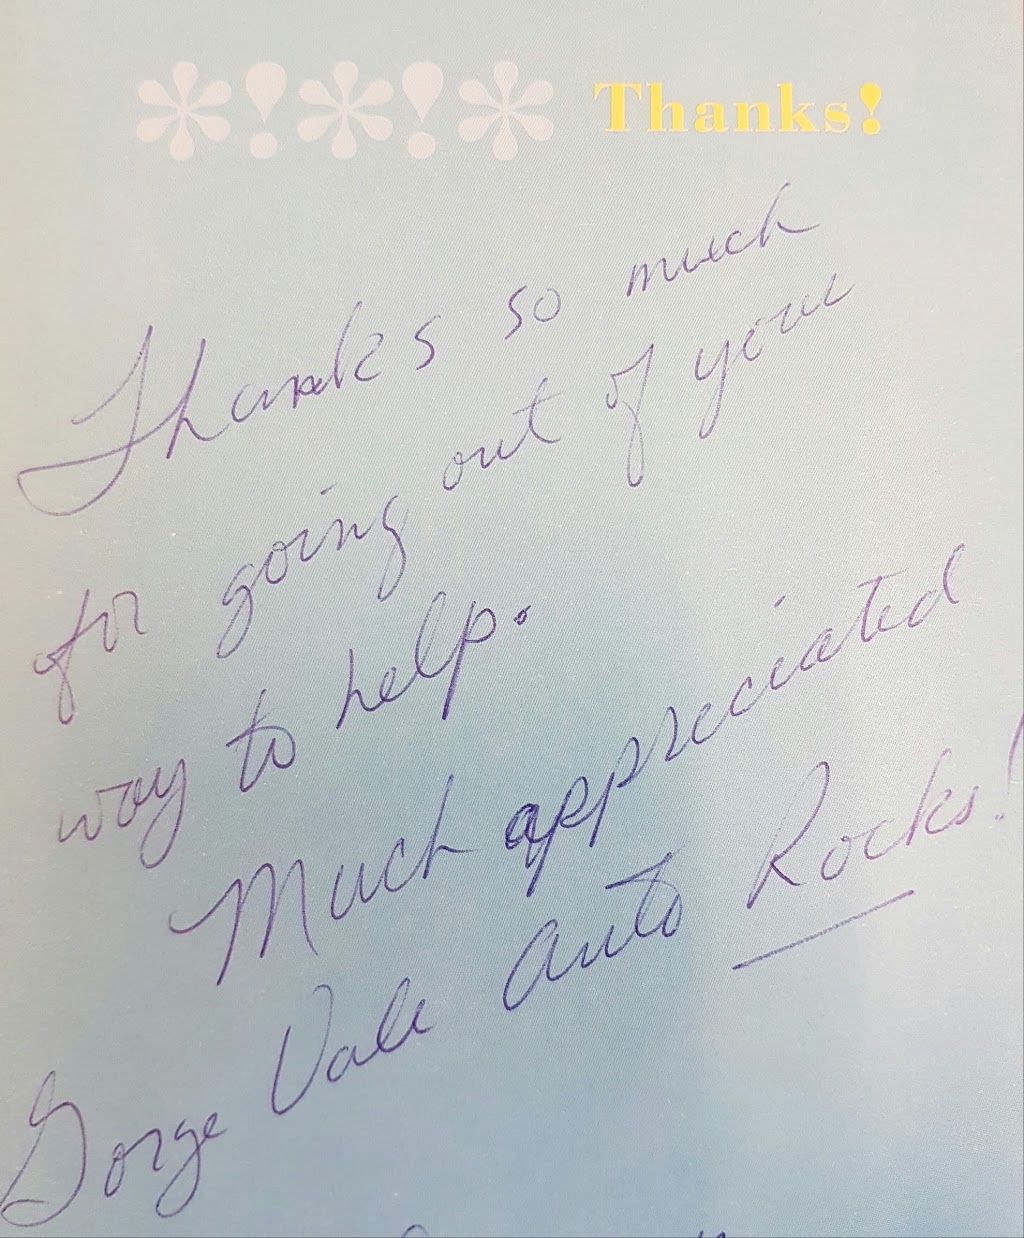 *!*!* Thanks!
Thanks so much
for going out of your
way to help.
Much appreciated
Gorge Vale Auto Rocks!